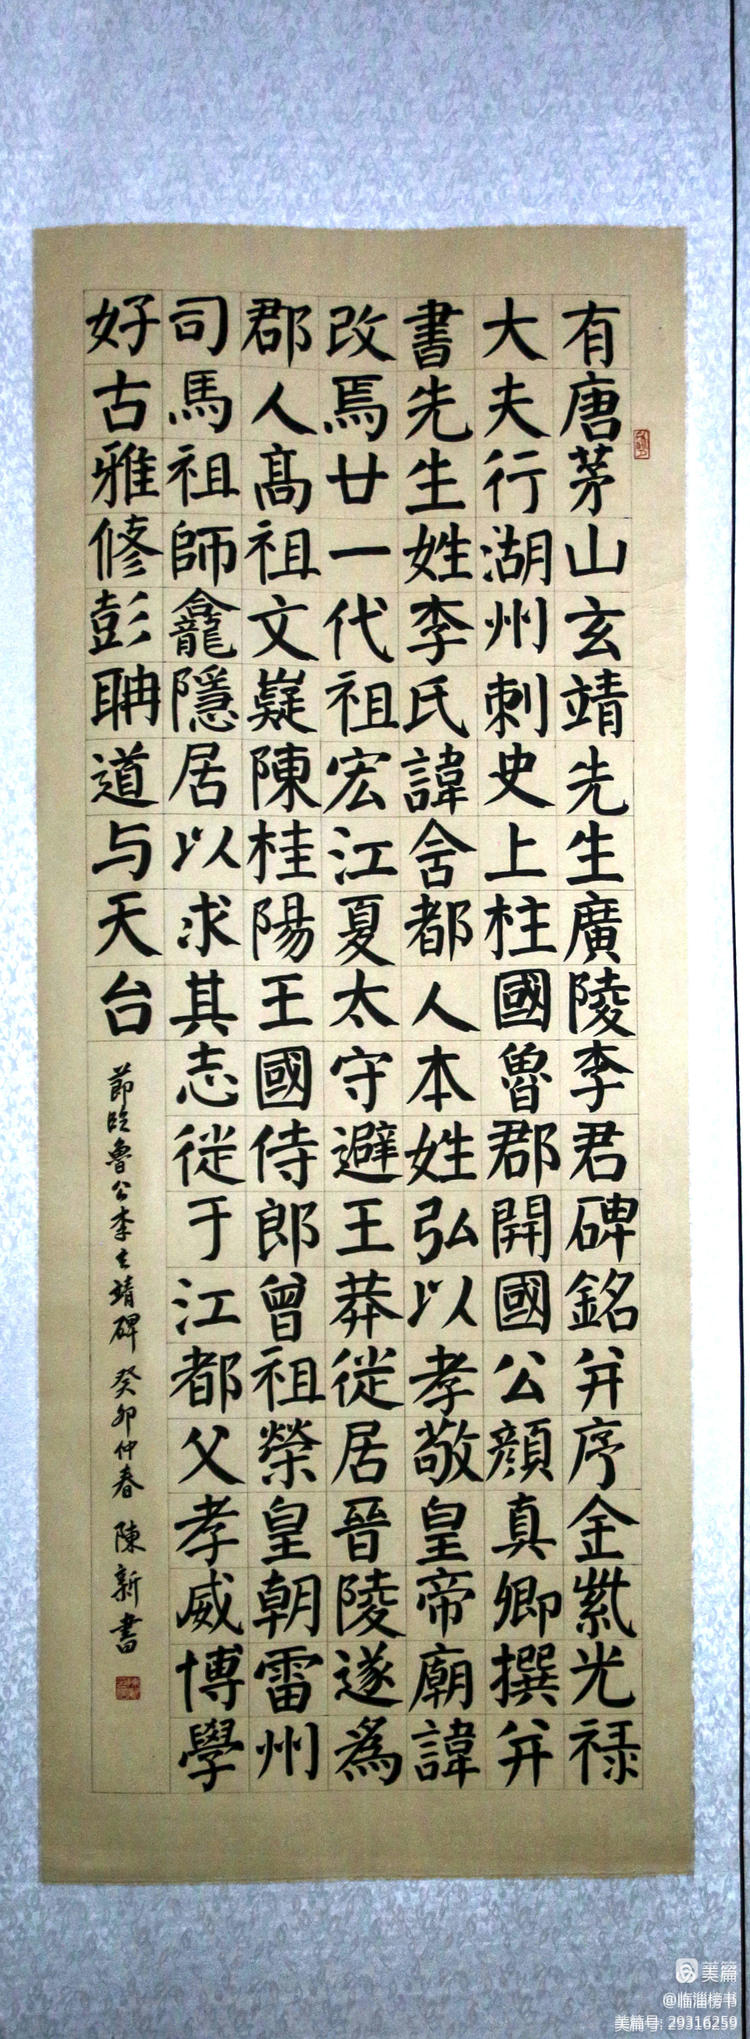 有唐茅山玄靖先生廣陵李君碑銘并序金紫光禄
大夫行湖州刺史上柱國魯郡開國公顔真卿撰并
書先生姓李氏諱含都人本姓弘以孝敬皇帝廟諱
改焉廿一代祖宏江夏太守避王莽從居晉陵遂為
郡人高祖文嶷陳桂陽王國侍郎曾祖榮皇朝雷州
司馬祖師龕隱居以求其志從于江都父孝威博學
好古雅修彭聃道与天台
節臨魯公李玄靖碑 癸卯仲春 陳新書
美篇
@临淄榜书
美篇号: 29316259